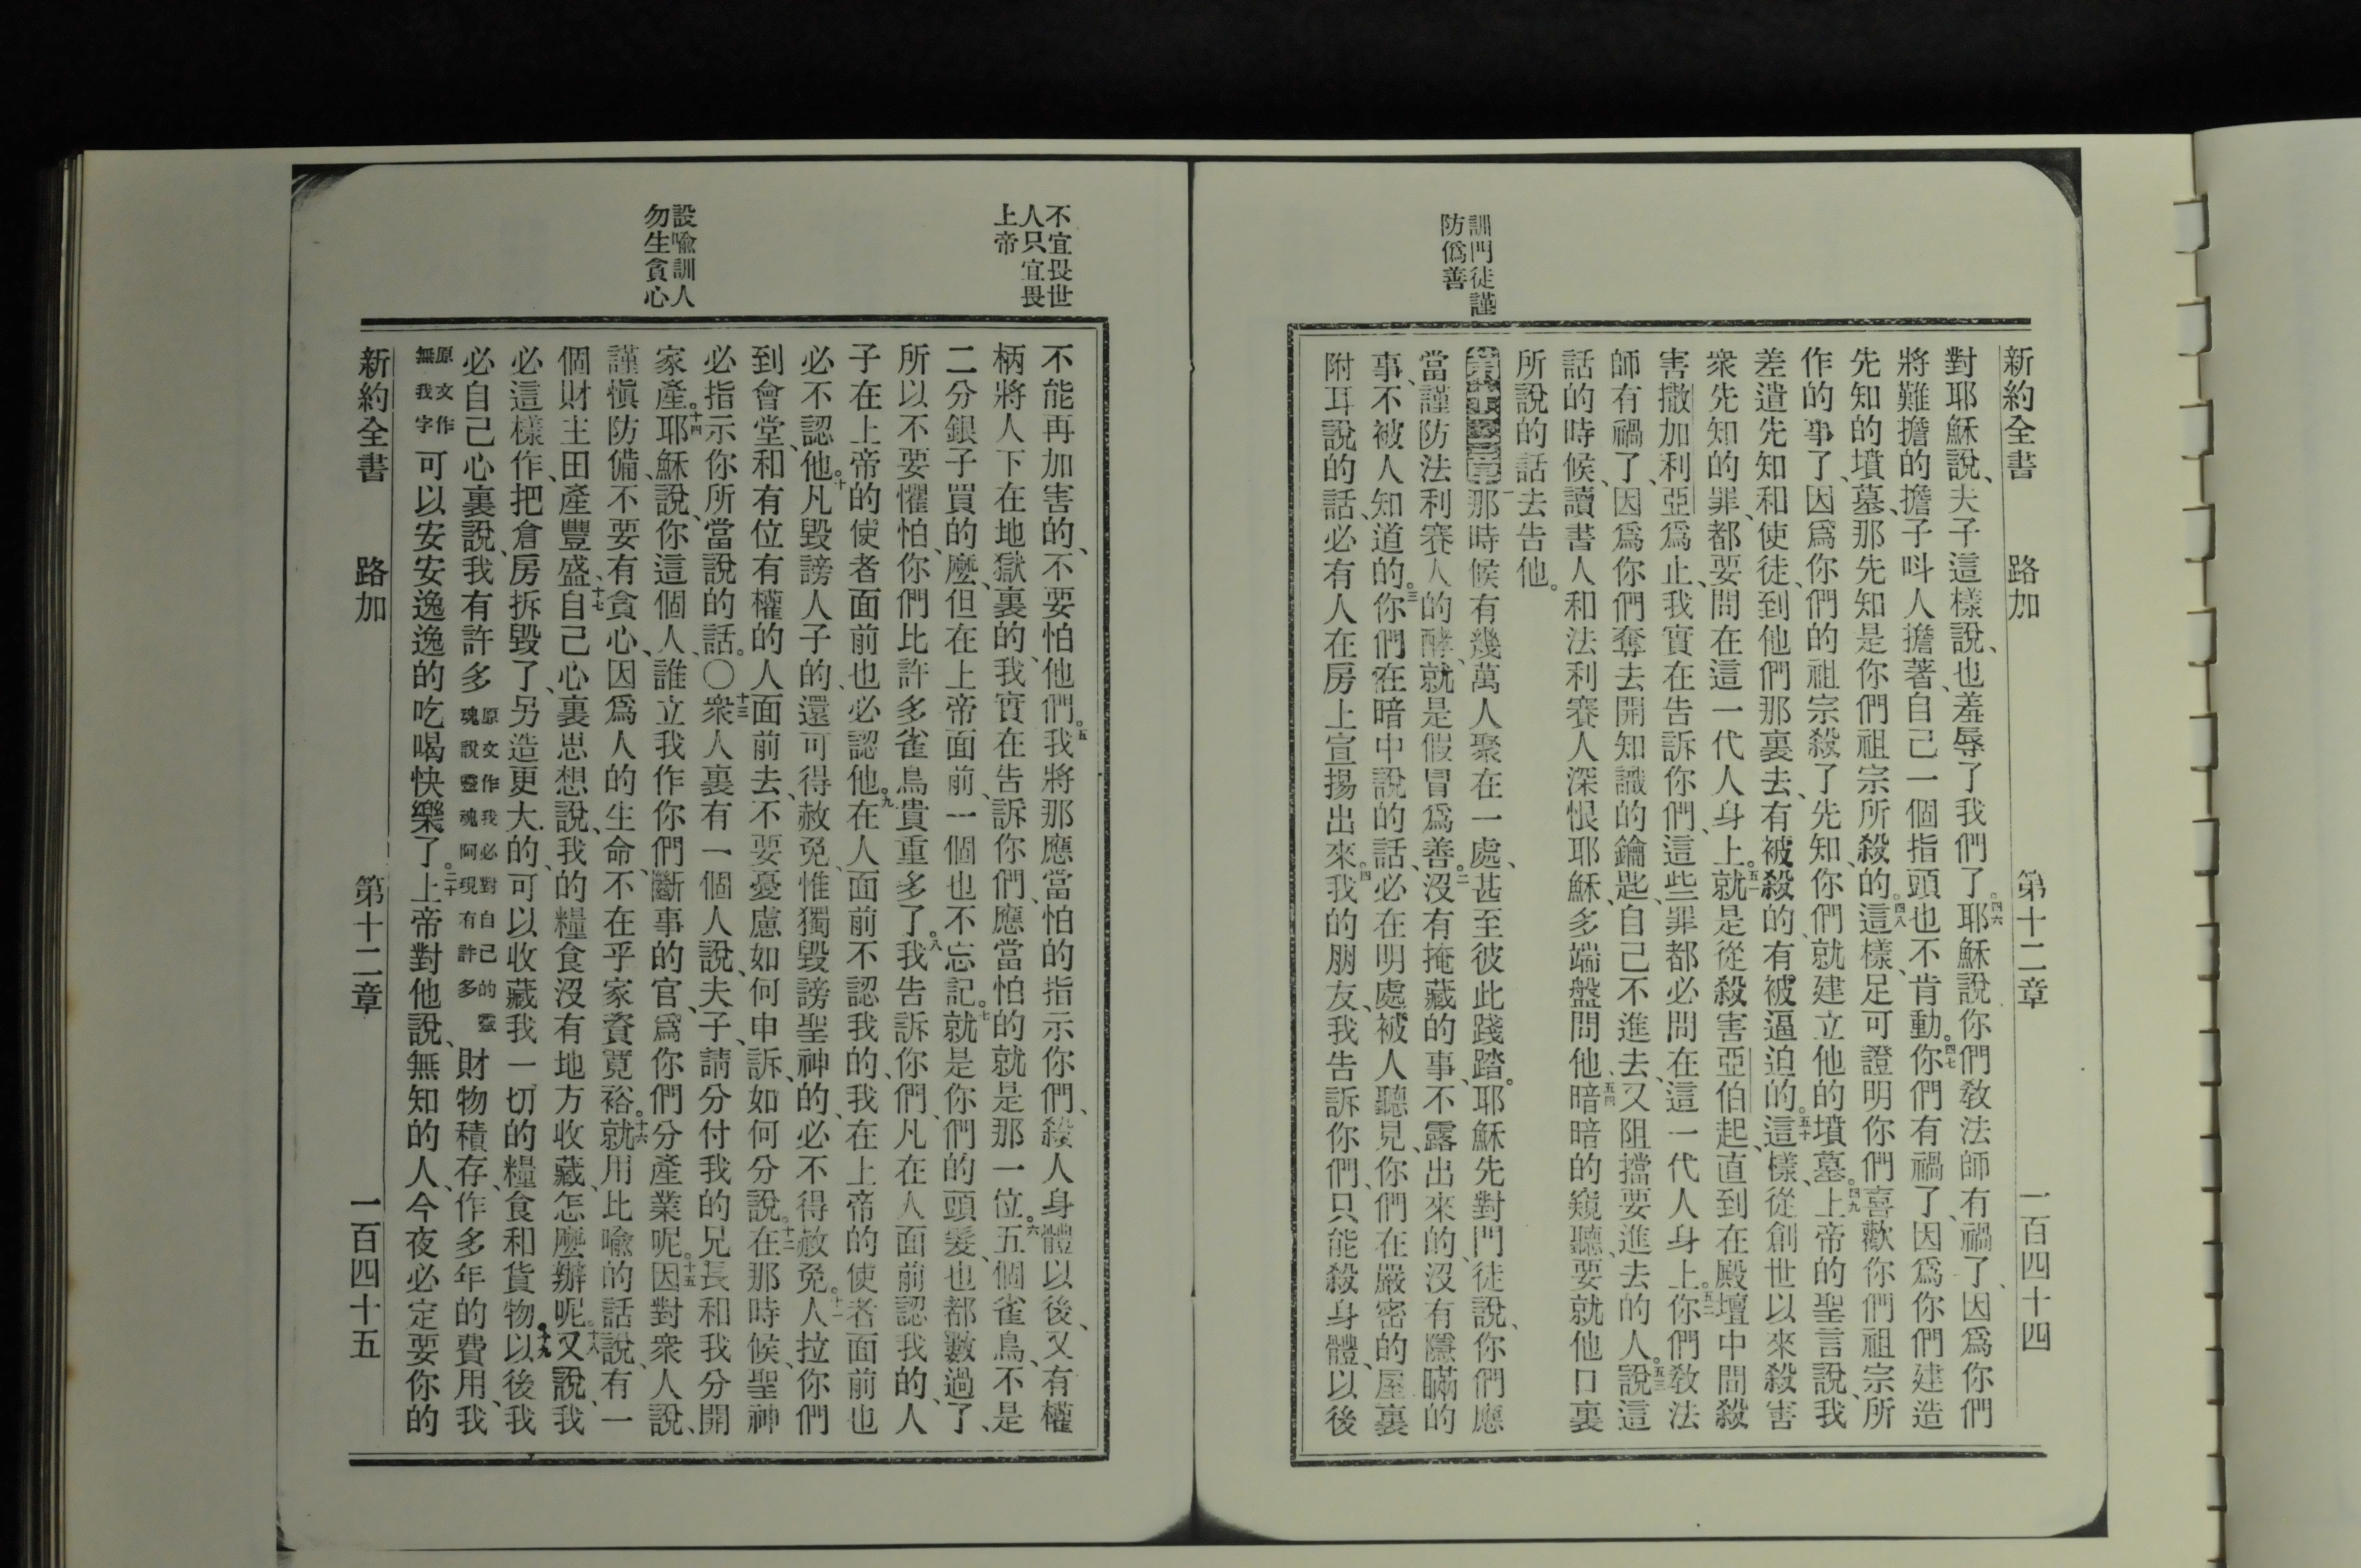 新約全書 路加 第十二章 一百四十四
對耶穌說、夫子這樣說、也羞辱了我們了。四六耶穌說你們敎法師有禍了、因爲你們
將難擔的擔子呌人擔著、自己一個指頭也不肯動。四七你們有禍了因爲你們建造
先知的墳墓、那先知是你們祖宗所殺的。四八這樣、足可證明你們喜歡你們祖宗所
作的事了、因爲你們的祖宗殺了先知、你們就建立他的墳墓。四九上帝的聖言說、我
差遣先知和使徒、到他們那裏去、有被殺的、有被逼迫的。五十這樣、從創世以來殺害
衆先知的罪、都要問在這一代人身上。五一就是從殺害亞伯起、直到在殿壇中間殺
害撒加利亞爲止、我實在告訴你們、這些罪都必問在這一代人身上。五二你們敎法
師有禍了、因爲你們奪去開知識的鑰匙、自己不進去、又阻擋要進去的人。五三說這
話的時候、讀書人和法利賽人深恨耶穌、多端盤問他、五四暗暗的窺聽、要就他口裏
所說的話去告他。
訓門徒謹
防僞善
第十二章一那時候有幾萬人聚在一處、甚至彼此踐踏。耶穌先對門徒說、你們應
當謹防法利賽人的酵、就是假冒爲善。二沒有掩藏的事、不露出來的、沒有隱瞞的
事、不被人知道的。三你們在暗中說的話、必在明處被人聽見、你們在嚴密的屋裏
附耳說的話、必有人在房上宣揚出來。四我的朋友、我告訴你們、只能殺身體、以後
不宜畏世
人只宜畏
上帝
不能再加害的、不要怕他們。五我將那應當怕的指示你們、殺人身體以後、又有權
柄將人下在地獄裏的、我實在告訴你們、應當怕的就是那一位。六五個雀鳥、不是
二分銀子買的麼、但在上帝面前、一個也不忘記。七就是你們的頭髮、也都數過了、
所以不要懼怕、你們比許多雀鳥貴重多了。八我告訴你們、凡在人面前認我的、人
子在上帝的使者面前也必認他。九在人面前不認我的、我在上帝的使者面前也
必不認他。十凡毀謗人子的、還可得赦免、惟獨毀謗聖神的、必不得赦免。十一人拉你們
到會堂、和有位有權的人面前去、不要憂慮如何申訴、如何分說。十二在那時候、聖神
必指示你所當說的話。〇十三衆人裏有一個人說、夫子、請分付我的兄長和我分開
家產。十四耶穌說、你這個人、誰立我作你們斷事的官、爲你們分產業呢。十五因對衆人說、
設喩訓人
勿生貪心
謹愼防備、不要有貪心、因爲人的生命、不在乎家資寬裕。十六就用比喩的話說、有一
個財主田產豐盛、十七自己心裏思想說、我的糧食沒有地方收藏、怎麼辦呢。十八又說、我
必這樣作、把倉房拆毀了、另造更大的、可以收藏我一切的糧食和貨物、十九以後我
必自己心裏說、我有許多原文作我必對自己的靈魂說靈魂阿現有許多財物積存、作多年的費用、我
原文作無我字可以安安逸逸的吃喝快樂了。二十上帝對他說、無知的人、今夜必定要你的
新約全書 路加 第十二章 一百四十五